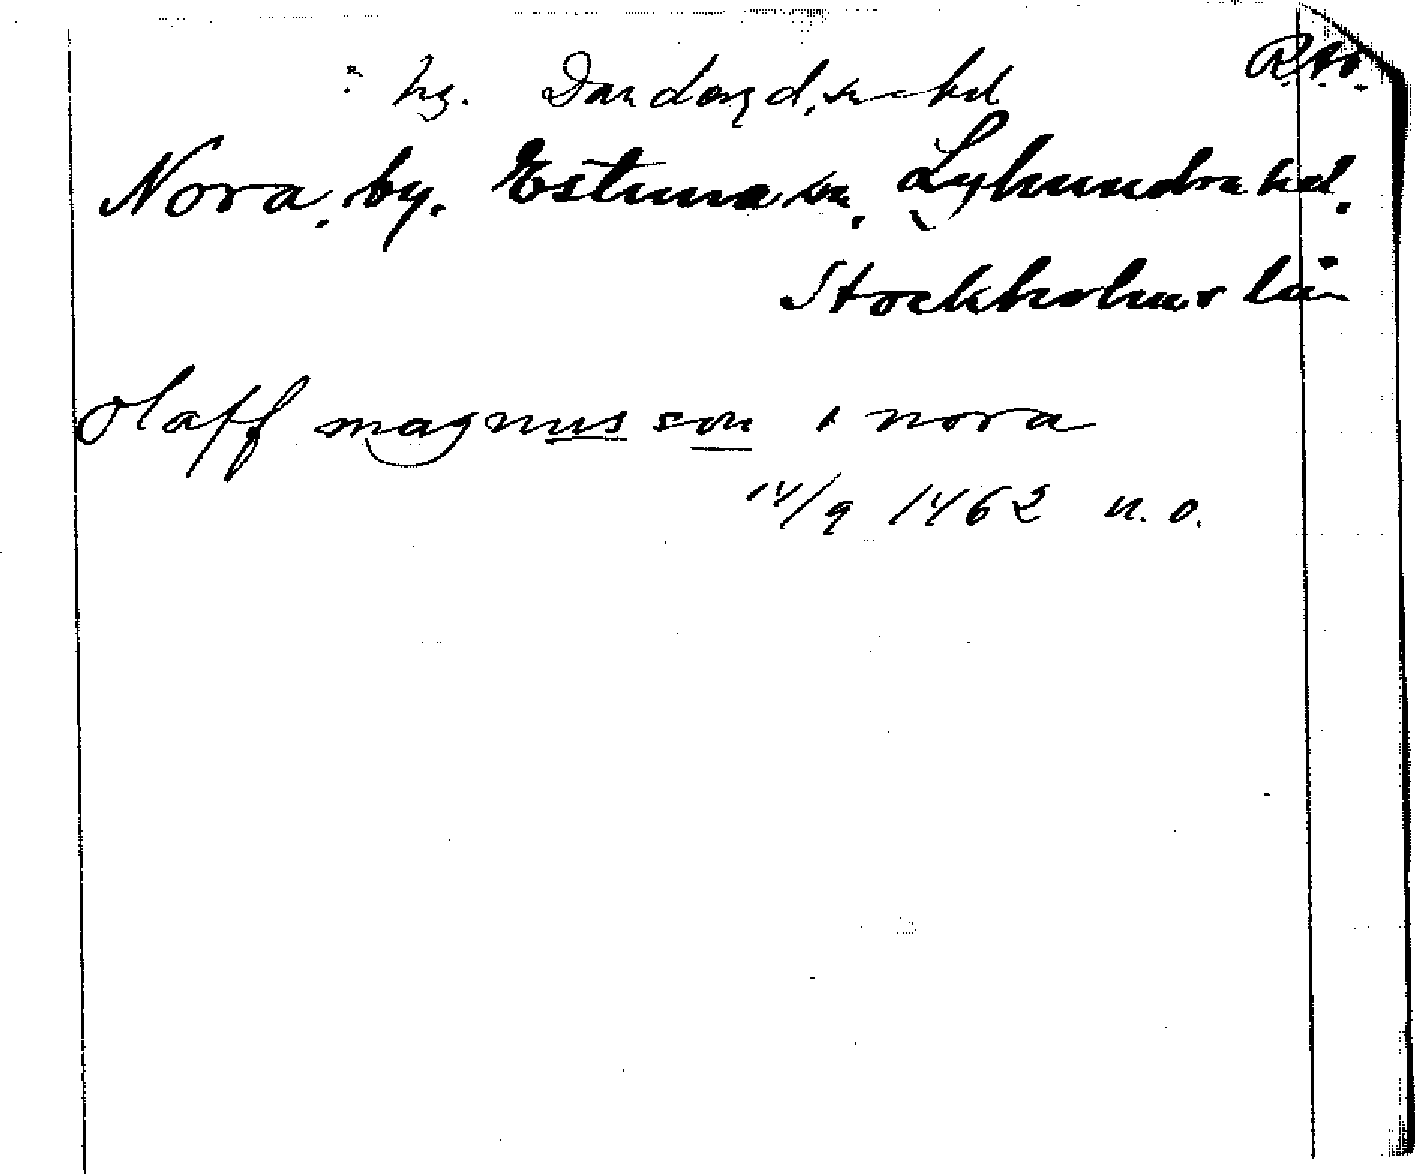 R.A.
hg. Danderyds sk hd
Nora, by. Estuna sn. Lyhundra hd.
Stockholms län
Olaff magnus son i nora
14/9 1462 n. o.